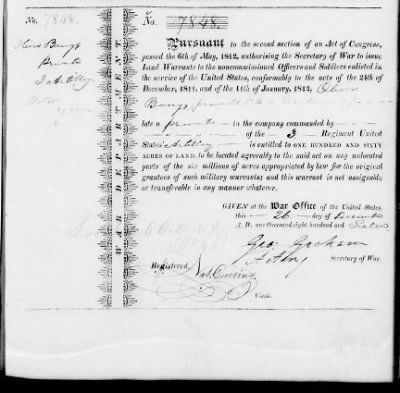 No. 7848.
Private
3 Artillery
WAR DEPARTMENT
No. 7848.
Pursuant to the second section of an Act of Congress,
passed the 6th of May, 1812, authorising the Secretary of War to issue
Land Warrants to the noncommissioned Officers and Soldiers enlisted in
the service of the United States, conformably to the acts of the 24th of
December, 1811, and of the 11th of January, 1812, Oliver
Bangs
late a private in the company commanded by
of the 3 Regiment United
States' Artillery is entitled to ONE HUNDRED AND SIXTY
ACRES OF LAND, to be located agreeably to the said act on any unlocated
parts of the six millions of acres appropriated by law for the original
grantees of such military warrants; and this warrant is not assignable
or transferable in any manner whatever.
GIVEN at the War Office of the United States,
this 26 day of December
A. D. one thousand eight hundred and Sixteen
Geo: Graham
Acting Secretary of War.
Registered, Nat. Cutting
Clerk.